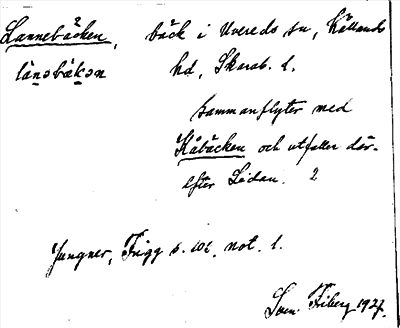 Lannebäcken, bäck i Uvereds sn, Kållands
länəbäkən hd, Skarab. l.
sammanflyter med
Kåbäcken och utfaller där-
efter Lidan. 2
Jungner, Frigg s. 102, not. 1.
Sven Friberg 1927.